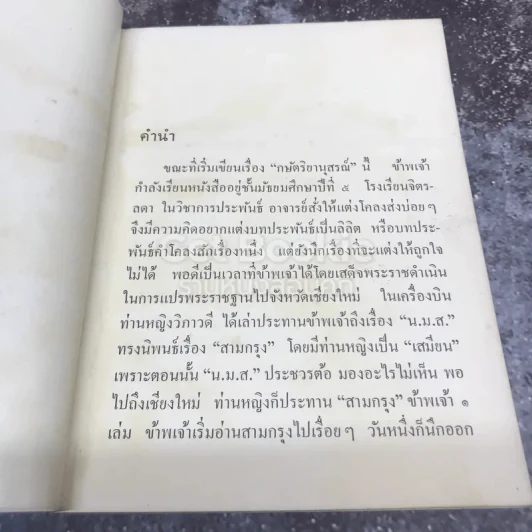 คำนำ
ขณะที่เริ่มเขียนเรื่อง “กษัตริยานุสรณ์” นี้ ข้าพเจ้า
กำลังเรียนหนังสืออยู่ชั้นมัธยมศึกษาปีที่ ๕ โรงเรียนจิตร-
ลดา ในวิชาการประพันธ์ อาจารย์สั่งให้แต่งโคลงส่งบ่อย ๆ
จึงมีความคิดอยากแต่งบทประพันธ์เป็นลิลิต หรือบทประ-
พันธ์คำโคลงสักเรื่องหนึ่ง แต่ยังนึกเรื่องที่จะแต่งให้ถูกใจ
ไม่ได้ พอดีเป็นเวลาที่ข้าพเจ้าได้โดยเสด็จพระราชดำเนิน
ในการแปรพระราชฐานไปจังหวัดเชียงใหม่ ในเครื่องบิน
ท่านหญิงวิภาวดี ได้เล่าประทานข้าพเจ้าถึงเรื่อง “น.ม.ส.”
ทรงนิพนธ์เรื่อง “สามกรุง” โดยมีท่านหญิงเป็น “เสมียน”
เพราะตอนนั้น “น.ม.ส.” ประชวรต้อ มองอะไรไม่เห็น พอ
ไปถึงเชียงใหม่ ท่านหญิงก็ประทาน “สามกรุง” ข้าพเจ้า ๑
เล่ม ข้าพเจ้าเริ่มอ่านสามกรุงไปเรื่อย ๆ วันหนึ่งก็นึกออก